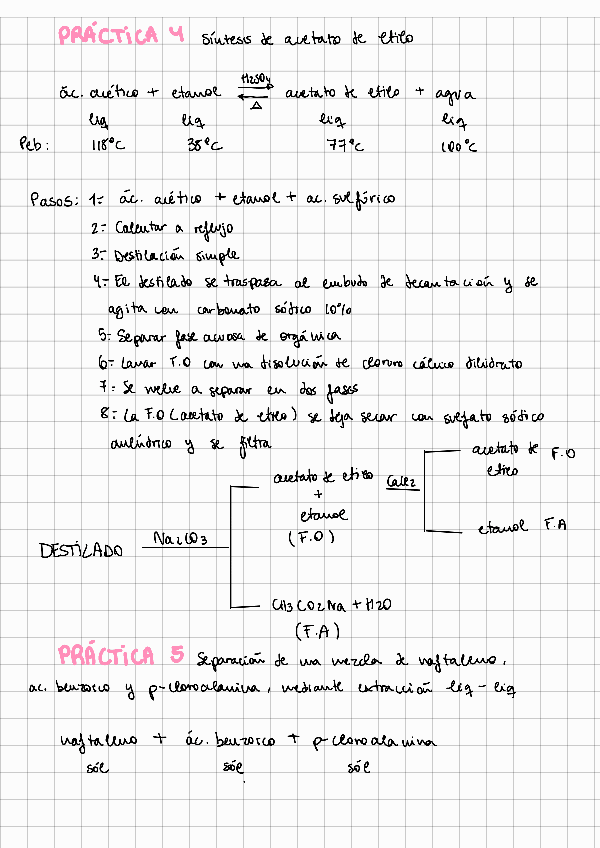 PRÁCTICA 4 Síntesis de acetato de etilo
H2SO4
ác. acético + etanol ⇌ acetato de etilo + agua
Δ
liq liq liq liq
Peb: 118°C 38°C 77°C 100°C
Pasos: 1- ác. acético + etanol + ac. sulfúrico
2- Calentar a reflujo
3- Destilación simple
4- El destilado se traspasa al embudo de decantación y se
agita con carbonato sódico 10%
5- Separar fase acuosa de orgánica
6- Lavar F.O con una disolución de cloruro cálcico dihidrato
7- Se vuelve a separar en dos fases
8- La F.O (acetato de etilo) se deja secar con sulfato sódico
anhídrico y se filtra
acetato de etilo F.O
acetato de etilo CaCl2
+
etanol
etanol F.A
(F.O)
DESTILADO Na2CO3
CH3CO2Na + H2O
(F.A)
PRÁCTICA 5 Separación de una mezcla de naftaleno,
ac. benzoico y p-cloroalanina, mediante extracción liq - liq
naftaleno + ác. benzoico + p-cloroalanina
sól sól sól